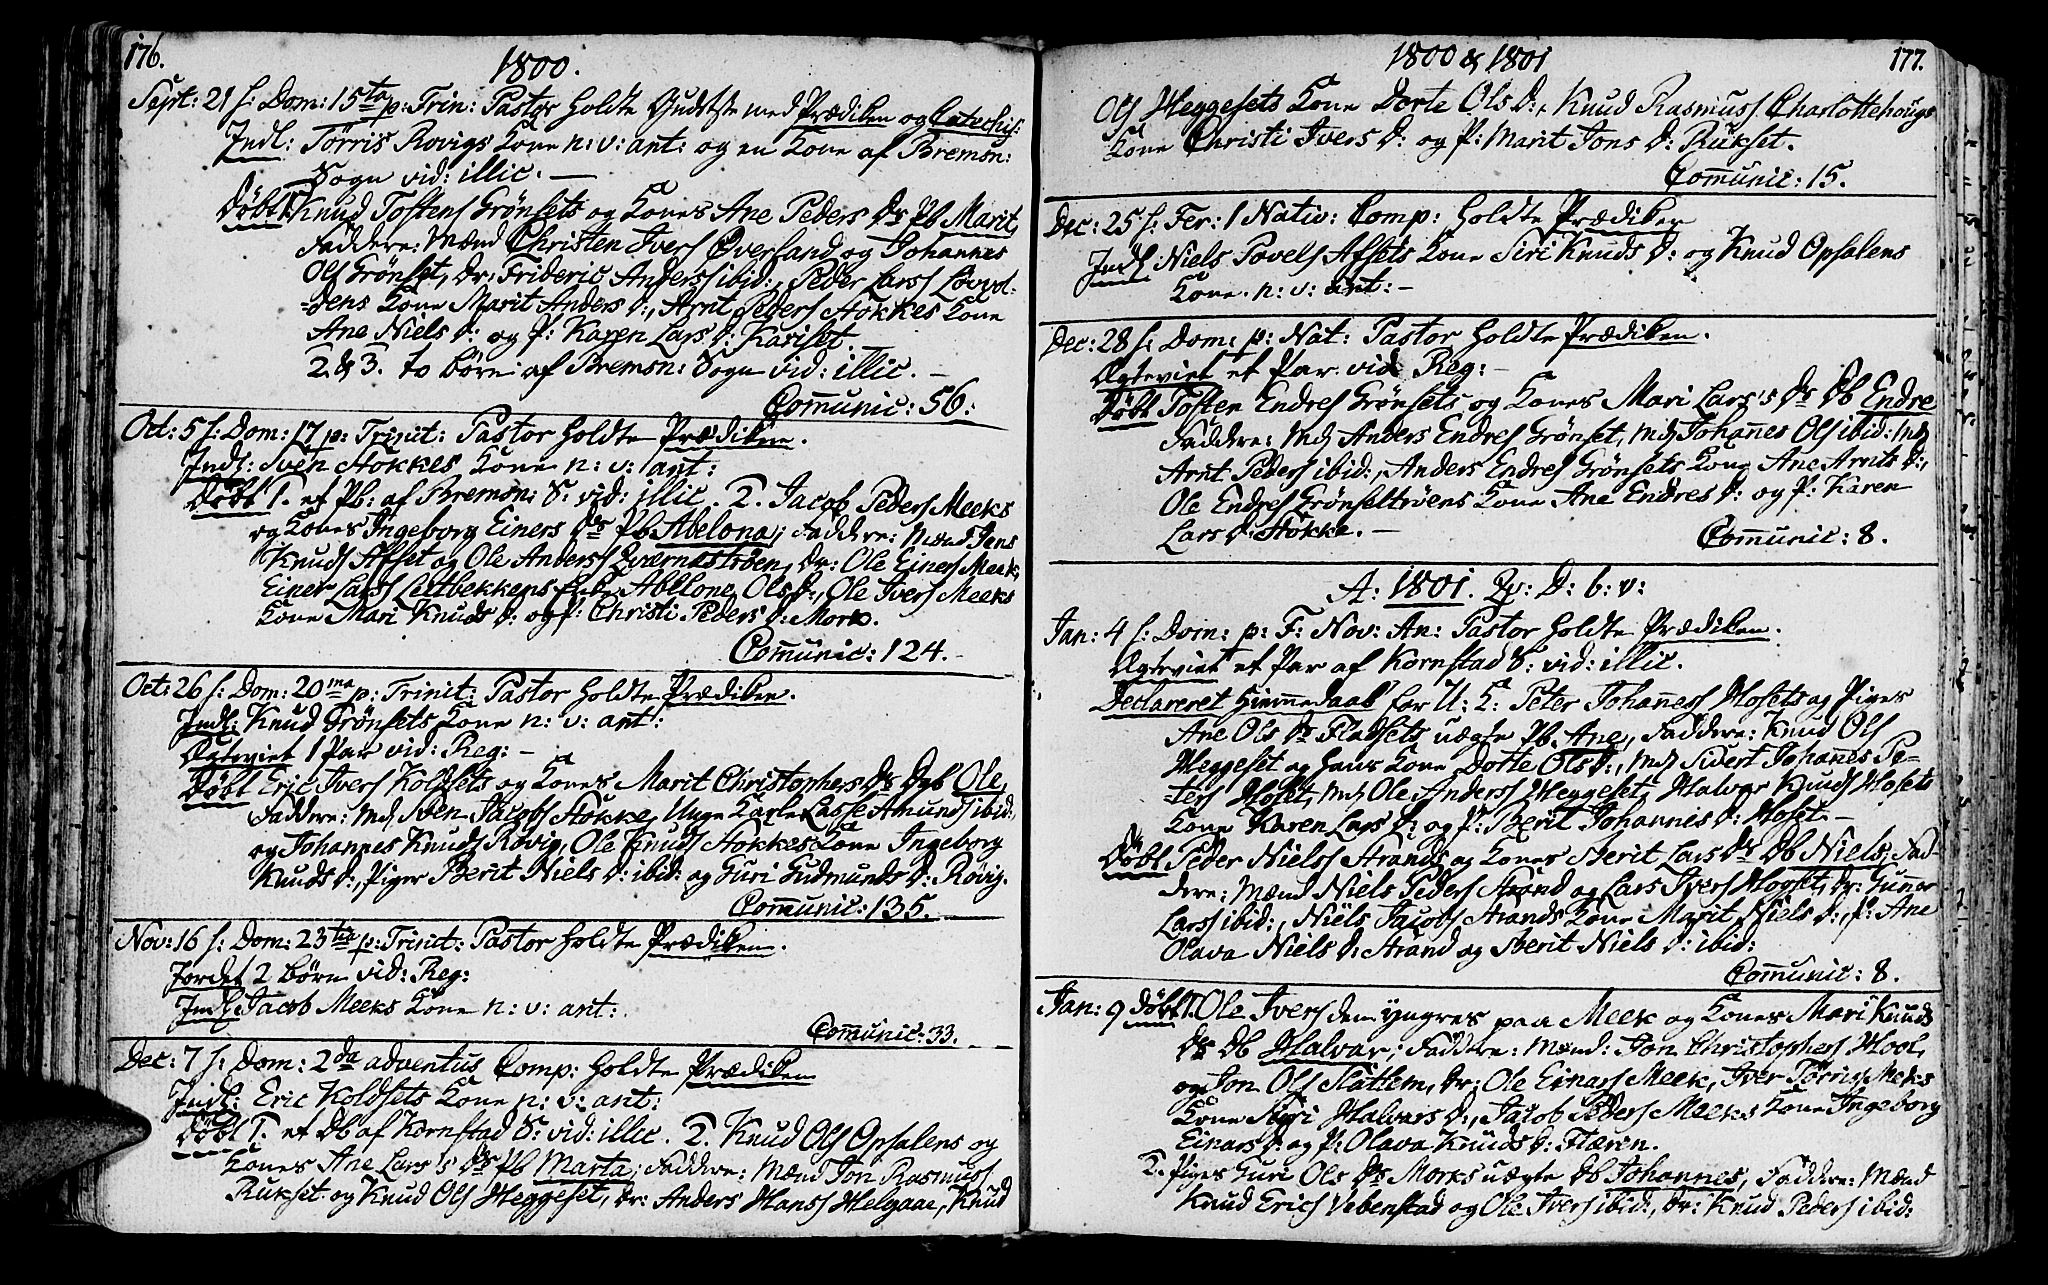 176.
1800.
Sept: 21 s: Dom: 15ta p: Trin: Pastor holdte Gudstste med Prædiken og Catechis:
Indl: Tørris Rovigs Kone n: v: ant: og en Kone af Bremsn:
Sogn vid: illic. —
Døbt 1. Knud Tostens Grønsets og Kones Ane Peders Dr Pb Marit,
Faddere: Mænd Christen Ivers Øverland og Johannes
Ols Grønset, Dr: Frideric Anders ibid:, Peder Lars Løvvol-
-dens Kone Marit Anders D:, Arnt Peders Stokkes Kone
Ane Niels D: og P: Karen Lars D: Kariset.
2 & 3. to børn af Bremsn: Sogn vid: illic. —
Communic: 56.
Oct: 5 s: Dom: 17 p: Trinit: Pastor holdte Prædiken.
Indl: Sven Stokkes Kone n: v: ant:
Døbt 1. et Pb: af Bremsn: S: vid: illic. 2. Jacob Peders Meeks
og Kones Ingeborg Einers Dr Pb Abelona; Faddere: Mænd Jens
Knuds Afset og Ole Anders Qværnestrøen, Dr: Ole Einers Meek,
Einer Lars Leitbekkens Enke Abelone Ols D:, Ole Ivers Meeks
Kone Mari Knuds D: og P: Christi Peders D: Mork.
Communic: 124.
Oct: 26 s: Dom: 20ma p: Trinit: Pastor holdte Prædiken.
Indl: Knud Grønsets Kone n: v: ant:
Ægteviet 1 Par vid: Reg: —
Døbt Eric Ivers Koldsets og Kones Marit Christophers Dr Db Ole,
Faddere: Md Sven Jacobs Stokke, Unge Karle Lasse Amunds ibid:
og Johannes Knuds Røvig, Ole Knuds Stokkes Kone Ingeborg
Knuds D:, Piger Berit Niels D: ibid: og Guri Gudmunds D: Røvig.
Communic: 135.
Nov: 16 s: Dom: 23tia p: Trinit: Pastor holdte Prædiken.
Jordet 2 børn vid: Reg:
Indl: Jacob Meeks Kone n: v: ant:
Communic: 33.
Dec: 7 s: Dom: 2da adventus Comp: holdte Prædiken
Indl: Eric Koldsets Kone n: v: ant:
Døbt 1. et Db af Kornstad S: vid: illic. 2. Knud Ols Opsalens og
Kones Ane Lars's Dr Pb Marta; Faddere: Mænd Jon Rasmus
Rukset og Knud Ols Heggeset, Dr: Anders Hans Helgaae, Knud
1800 & 1801
177.
Ols Heggesets Kone Dorte Ols D:, Knud Rasmuss Charlottehougs
Kone Christi Ivers D: og P: Marit Jons D: Rukset.
Communic: 15.
Dec: 25 s: Fer: 1 Nativ: Comp: holdte Prædiken
Indl: Niels Povels Afsets Kone Siri Knuds D: og Knud Opsalens
Kone. n: v: ant: —
Dec: 28 s: Dom: p: Nat: Pastor holdte Prædiken.
Ægteviet et Par vid Reg: —
Døbt Tosten Endres Grønsets og Kones Mari Lars's Dr Db Endre
Faddere: Md Anders Endres Grønset, Md Johannes Ols ibid: Md
Arnt Peders ibid:, Anders Endres Grønsets Kone Ane Arnts D:,
Ole Endres Grønsetrøens Kone Ane Endres D: og P: Karen
Lars D: Stokke. —
Communic: 8.
A: 1801. Qv: D: b: v:
Jan: 4 s: Dom: p: F: Nov: An: Pastor holdte Prædiken.
Ægteviet et Par af Kornstad S: vid: illic.
Declareret hiemmedaab for U: K: Peter Johannes Hosets og Piges
Ane Ols Dr Fladsets uægte Pb. Ane, Faddere: Knud Ols
Heggeset og hans Kone Dorte Ols D:, Md Sivert Johannes Pe-
ters Hoset, Md Ole Anders Heggeset, Halvar Knuds Hosets
Kone Karen Lars D: og P: Berit Johannis D: Hoset. —
Døbt Peder Niels Strands og Kones Berit Lars Dr Db Niels; Fad-
dere: Mænd Niels Peders Strand og Lars Ivers Hogset, Dr: Gunner
Lars ibid:, Niels Jacobs Strands Kone Marit Niels D:, P: Ane
Olava Niels D: Strand og Berit Niels D: ibid:
Communic: 8.
Jan: 9 Døbt 1. Ole Ivers den yngres paa Meek og Kones Mari Knuds
Dr Db Halvar; Faddere: Mænd: Jon Christophers Hool,
og Jon Ols Slattem, Dr: Ole Einars Meek, Iver Tørris Meeks
Kone Siri Halvars D:, Jacob Peders Meeks Kone Ingeborg
Einars D: og P: Olava Knuds D: Flæren.
2. Piges Guri Ols Dr Morks uægte Db Johannes, Faddere: Mænd
Knud Erics Vebenstad og Ole Ivers ibid:, Dr: Knud Peders ibid: